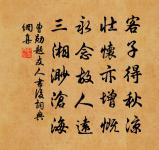 客子得秋涼
壯懷亦增慨
永念故人遠
三湘渺滄海
曹勛題友人書後詞典
網集